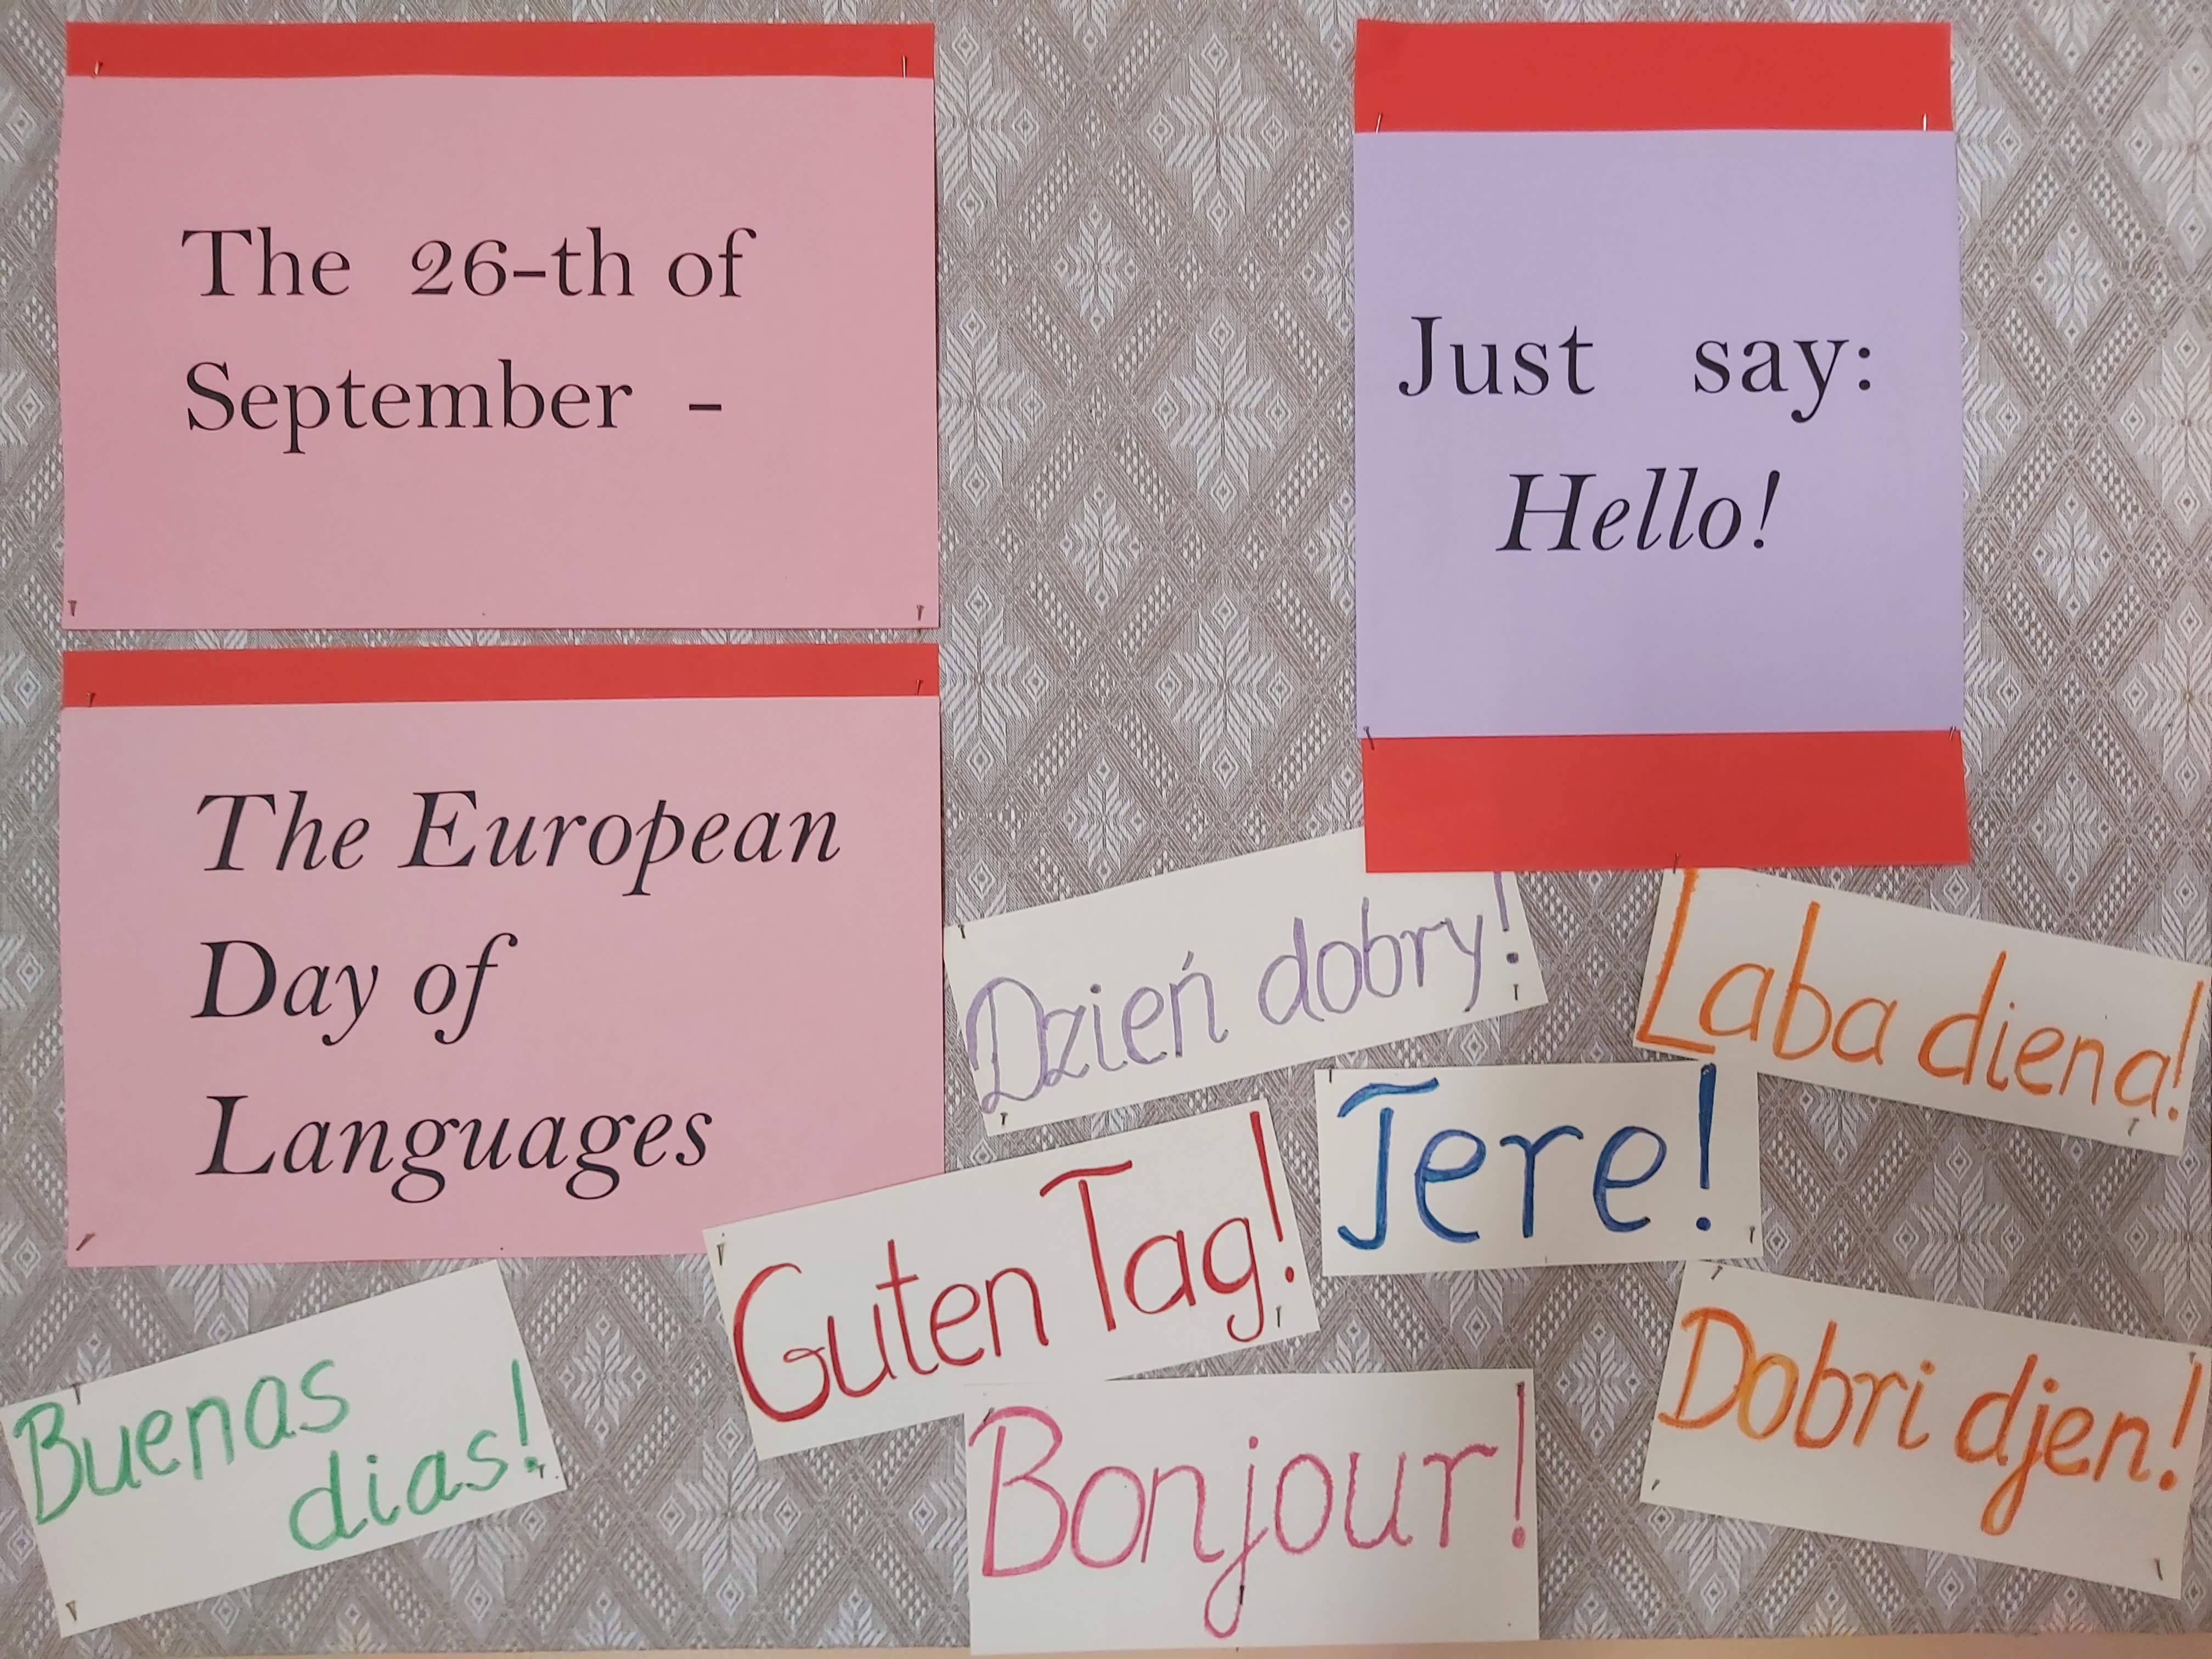 The 26-th of
September -
The European
Day of
Languages
Just say:
Hello!
Dzień dobry!
Laba diena!
Jere!
Guten Tag!
Buenas
dias!
Bonjour!
Dobri djen!